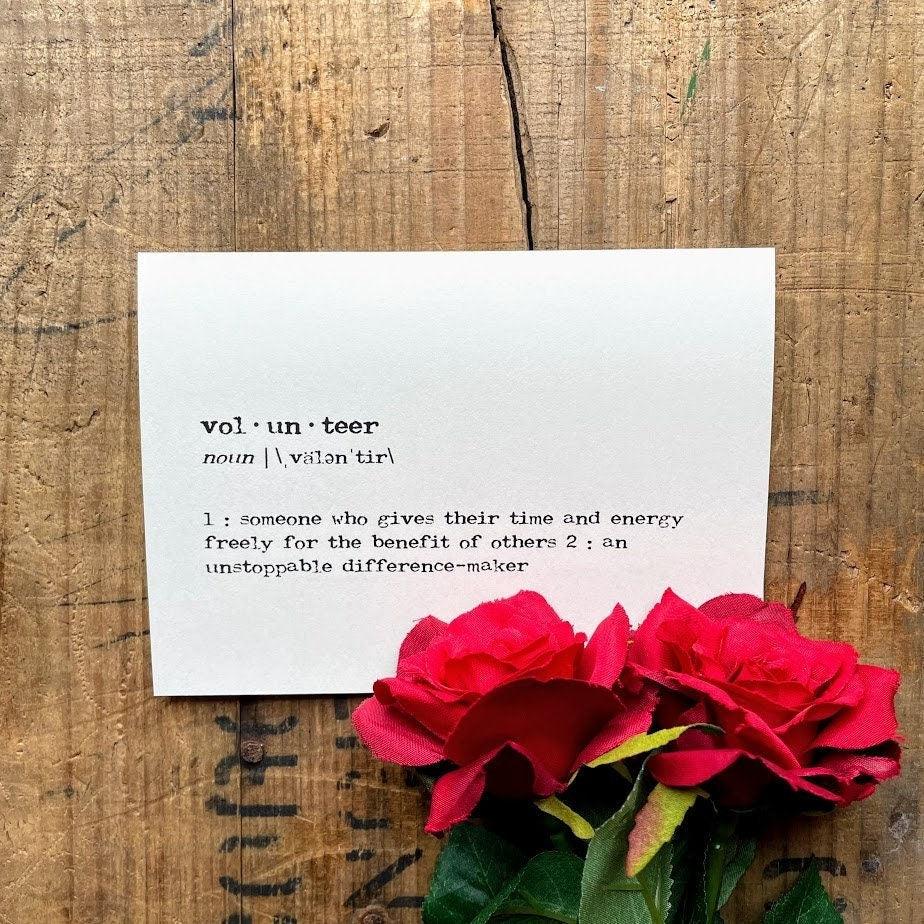 vol·un·teer
noun | \ˌvälənˈtir\
1 : someone who gives their time and energy
freely for the benefit of others 2 : an
unstoppable difference-maker